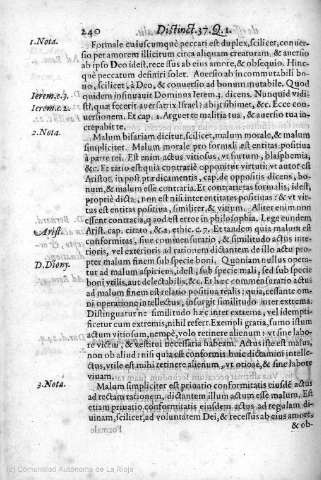 240 Distinct. 37. Q. 1.
1. Nota. Formale cuiuscumque peccati est duplex, scilicet, conuer-
sio per amorem illicitum circa aliquam creaturam, & auersio
ab ipso Deo idest, recessus ab eius amore, & obsequio. Hinc-
què peccatum definiri solet. Auersio ab incommutabili bo-
no, scilicet, à Deo, & conuersio ad bonum mutabile. Quod
Ierem. c. 3. quidem insinuauit Dominus Ierem. 3. dicens. Nunquid vidi-
Ierem. c. 2. sti, quæ fecerit auersatrix Israel; abijt sibimet, &c. Ecce con-
uersionem. Et cap. 2. Arguet te malitia tua, & auersio tua in-
crepabit te.
2. Nota. Malum bifariam dicitur, scilicet, malum morale, & malum
simpliciter. Malum morale pro formali est entitas positiua
à parte rei. Est enim actus vitiosus, vt furtum, blasphemia,
&c. Et ratio est quia contrariè opponitur virtuti: vt autor est
Aristot. in post prædicamentis, capite de oppositis dicens, bo-
num, & malum esse contraria. Et contrarietas formalis, idest,
propriè dicta, non est nisi inter entitates positiuas: & vir-
tus est entitas positiua, similiter, & vitium. Aliter enim non
essent contraria, quod est error in philosophia. Lege eundem
Arist. Arist. cap. citato, & 2. ethic. c. 7. Et tandem quia malum est
conformitas, siue commensuratio, & similitudo actus inte-
rioris, vel exterioris ad rationem dictantem de illo actu pro-
D. Diony. pter malum finem sub specie boni. Quoniam nullus opera-
tur ad malum aspiciens, idest, sub specie mali, sed sub specie
boni vtilis, aut delectabilis, &c. Et hæc commensuratio actus
ad malum finem est relatio positiua realis: quia, cessante om-
ni operatione intellectus, insurgit similitudo inter extrema.
Distinguatur nè similitudo hæc inter extrema, vel identi-
ficetur cum extremis, nihil refert. Exempli gratia, sumo istum
actum vitiosum, nempè, volo retinere alienum: vt sine labo-
re victui, & vestitui necessaria habeam. Actus iste est malus,
non ob aliud: nisi quia est conformis huic dictamini intelle-
ctus, vtile est mihi retinere alienum, vt otiosè, & sine labore
viuam.
3. Nota. Malum simpliciter est priuatio conformitatis eiusdē actus
ad rectam rationem, dictantem illum actum esse malum. Est
etiam priuatio conformitatis eiusdem actus ad regulam di-
uinam, scilicet, ad voluntatem Dei, & recessus ab eius amore,
& ob-
(c) Comunidad Autónoma de La Rioja